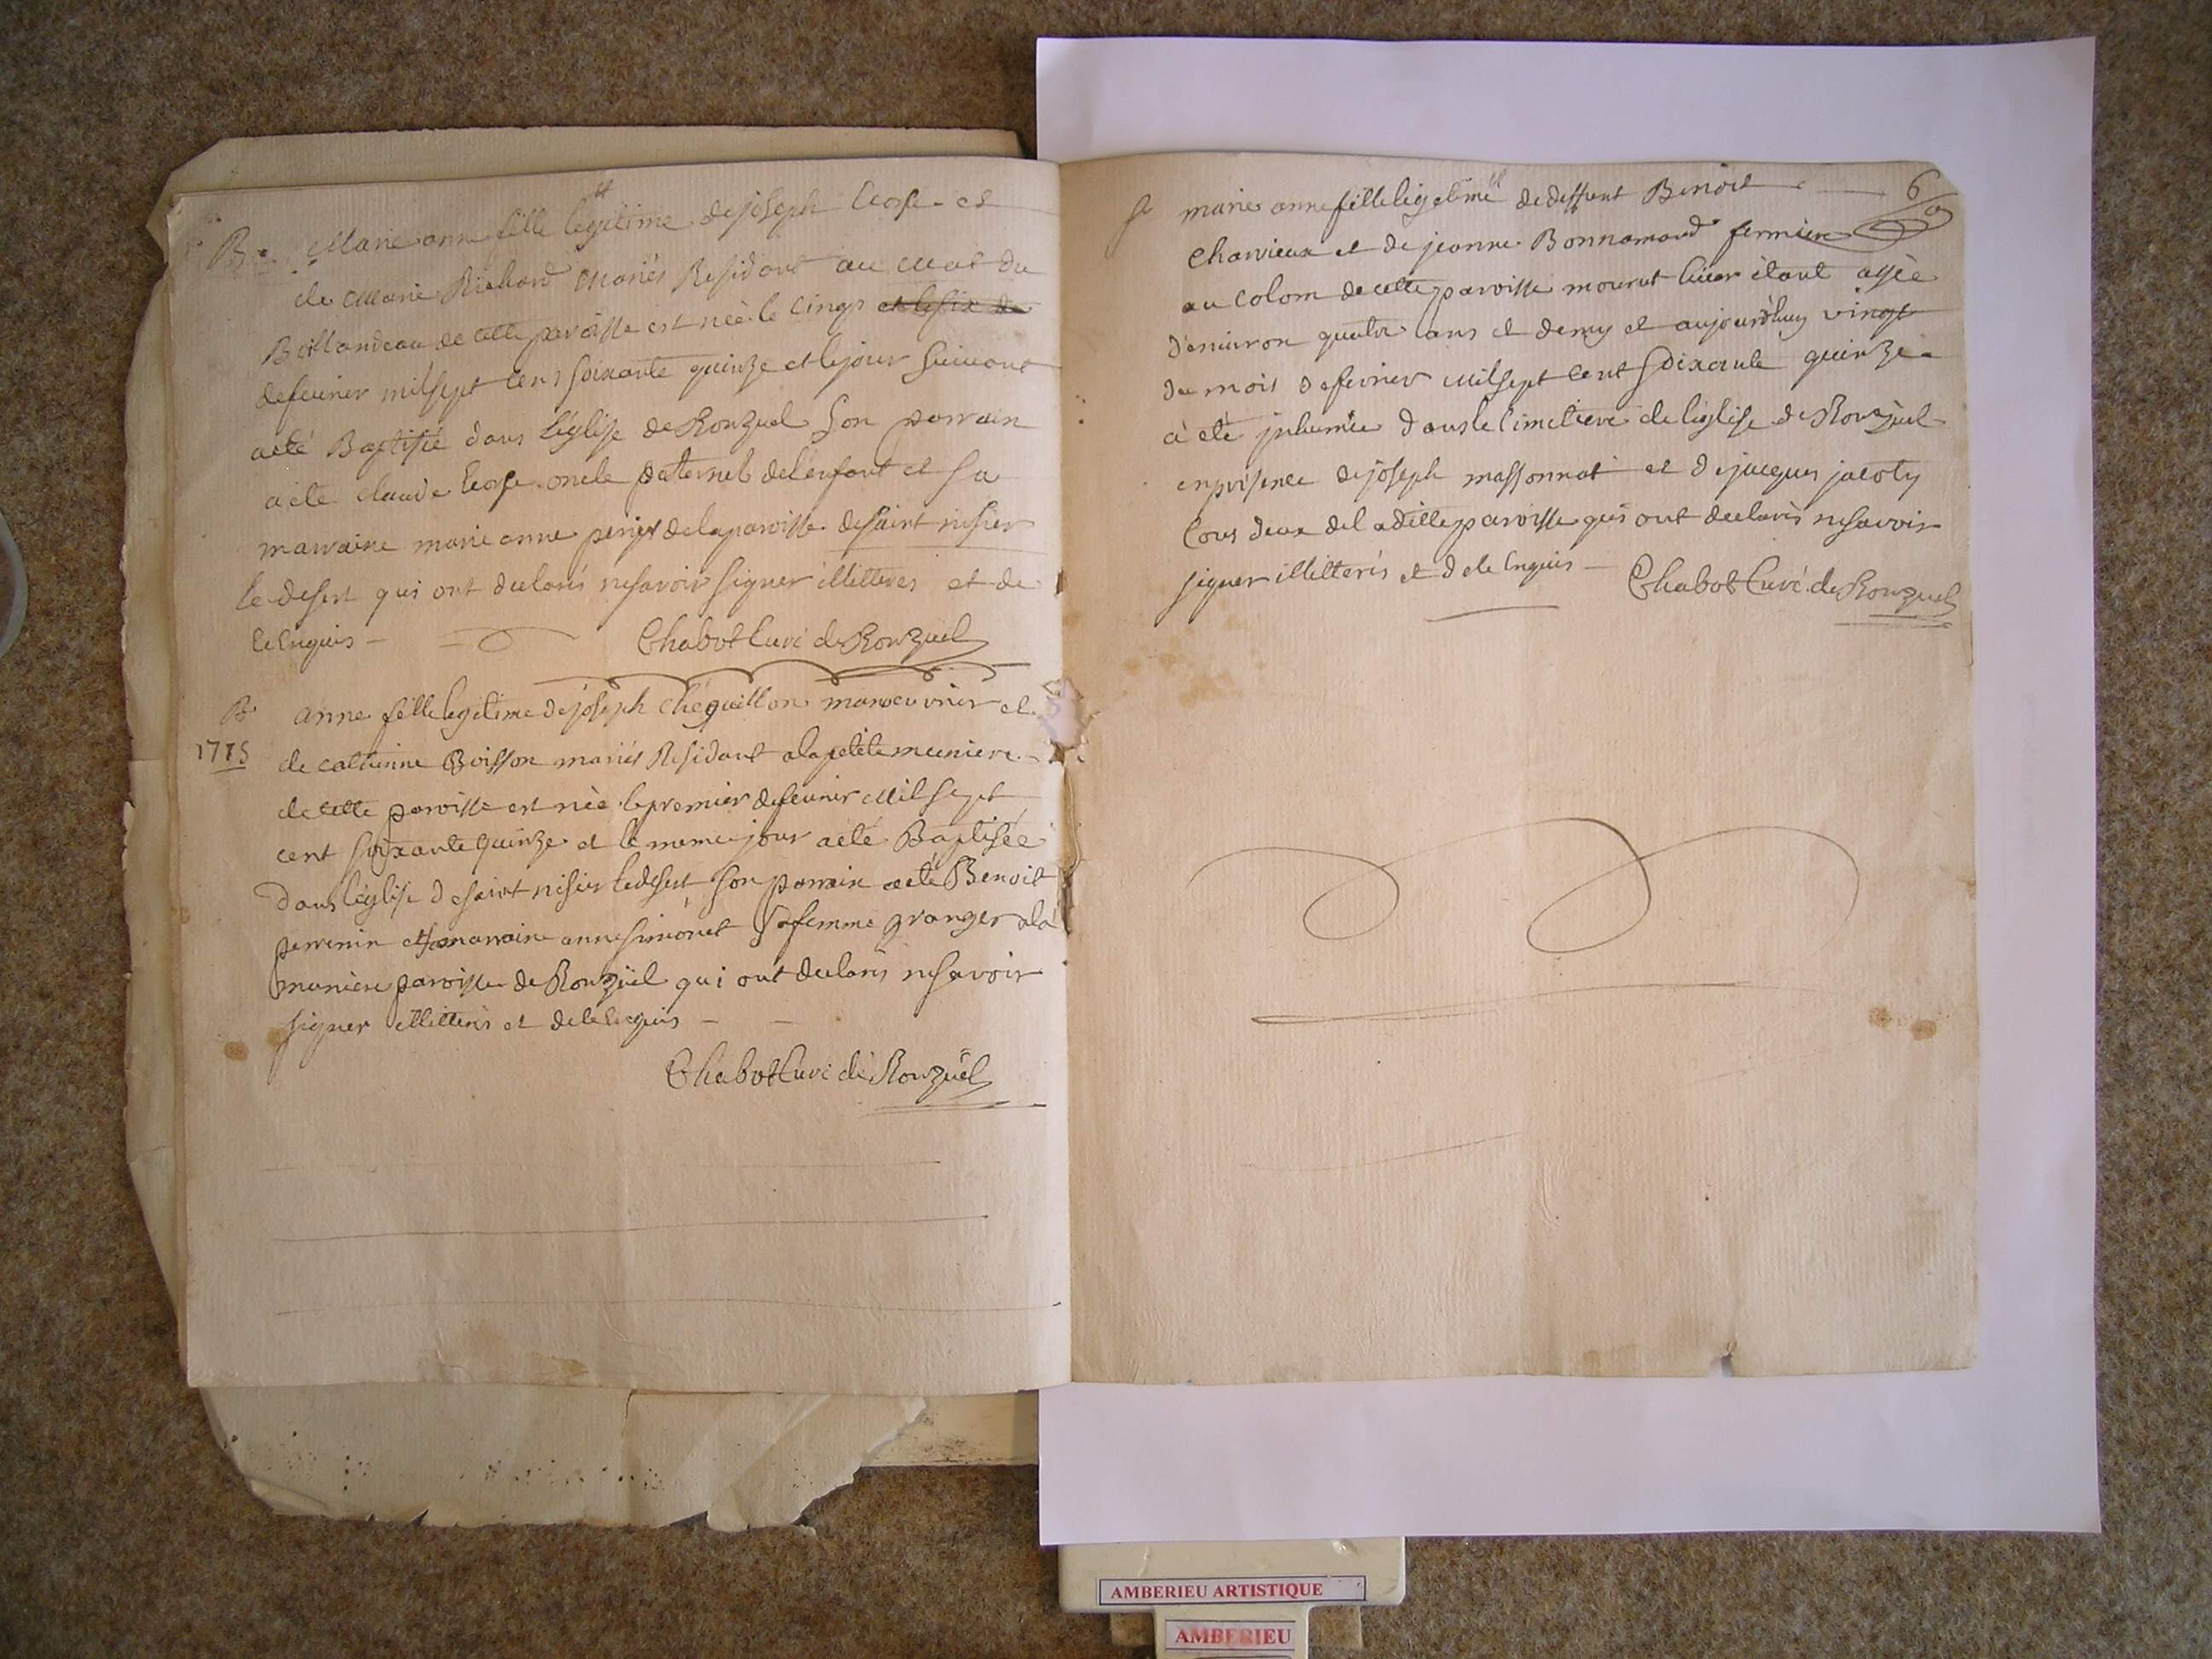 B. Marie anne fille legitime de joseph et
de Marie Richard Mariés Residant au Mas du
de cette paroisse est née le cinq et le six de
de fevrier mil sept cens soixante quinze et le jour suivant
a eté Baptisée dans l'église de Ronzuel son parrain
a eté claude oncle paternel de l'enfant et sa
marraine marie anne de la paroisse de saint nisier
le desert qui ont declarés ne savoir signer illitterés et de
ce enquis - Chabot Curé de Ronzuel
B. anne fille legitime de joseph manoeuvrier et
1775 de catherine Boisson mariés Residant a la petite muniere
de cette paroisse est née le premier de fevrier Mil sept
cent soixante quinze et le meme jour a eté Baptisée
dans l'église de saint nisier le desert son parrain a eté Benoit
perrenin et sa marraine anne simonet sa femme granger a la
muniere paroisse de Ronzüel qui ont declarés ne savoir
signer illitterés et de ce enquis - -
Chabot Curé de Ronzüel
6
marie anne fille legitime de deffunt Benoit
Charvieux et de jeanne Bonnamard fermiere
au colom de cette paroisse mourut hier étant agée
d'environ quatre ans et demy et aujourd'huy vingt
du mois de fevrier Mil sept cent soixante quinze
a eté inhumée dans le cimetiere de l'église de Ronzuel
en presence de joseph massonnat et de jacques jacoty
tous deux de la ditte paroisse qui ont declarés ne savoir
signer illitterés et de ce enquis - Chabot Curé de Ronzuel
AMBERIEU ARTISTIQUE
AMBERIEU